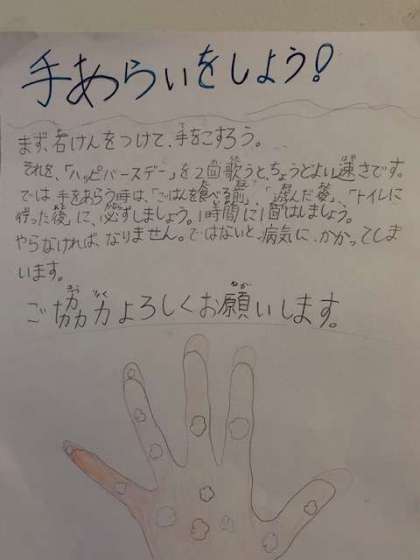 手あらいをしよう!
まず、石けんをつけて、手をこすろう。
それを、「ハッピバースデー」を2回歌うと、ちょうどよい速さです。
では、手をあらう時は、「ごはんを食べる前」、「遊んだ後」、「トイレに
行った後」に、必ずしましょう。1時間に1回はしましょう。
やらなければ、なりません。ではないと、病気に、かかってしま
います。
ご協力よろしくお願いします。